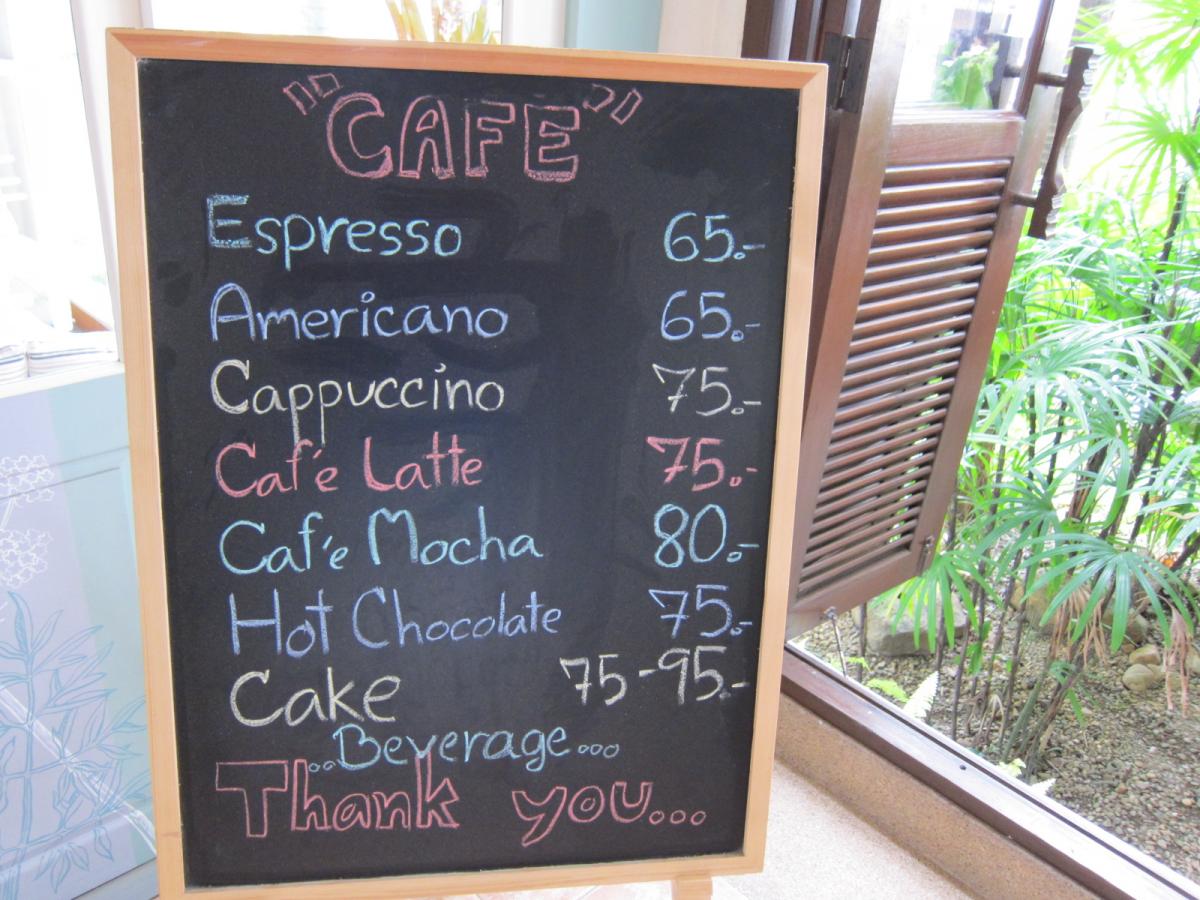 "CAFE"
Espresso 65.-
Americano 65.-
Cappuccino 75.-
Caf'e Latte 75.-
Caf'e Mocha 80.-
Hot Chocolate 75.-
Cake 75-95.-
..Beverage...
Thank you...